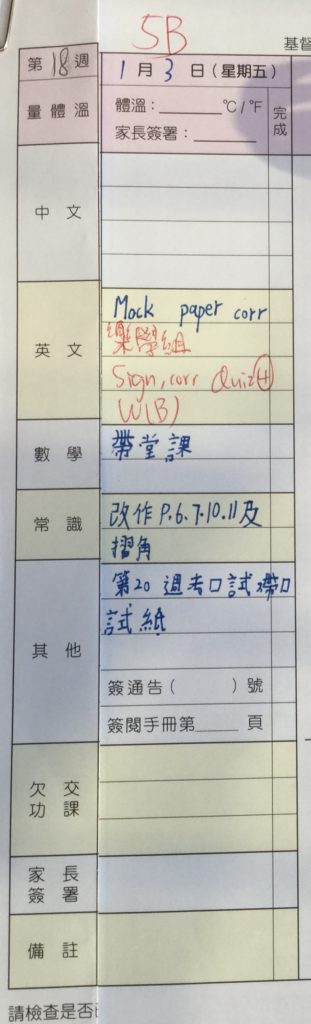 5B
基督
第18週 1月3日(星期五)
量體溫 體溫:______℃/℉ 完成
家長簽署:______
中文
英文 Mock paper corr
樂學組
Sign, corr Quiz④
W(B)
數學 帶堂課
常識 改作P.6.7.10.11及
摺角
其他 第20週考口試帶口
試紙
簽通告( )號
簽閱手冊第_____頁
欠交功課
家長簽署
備註
請檢查是否